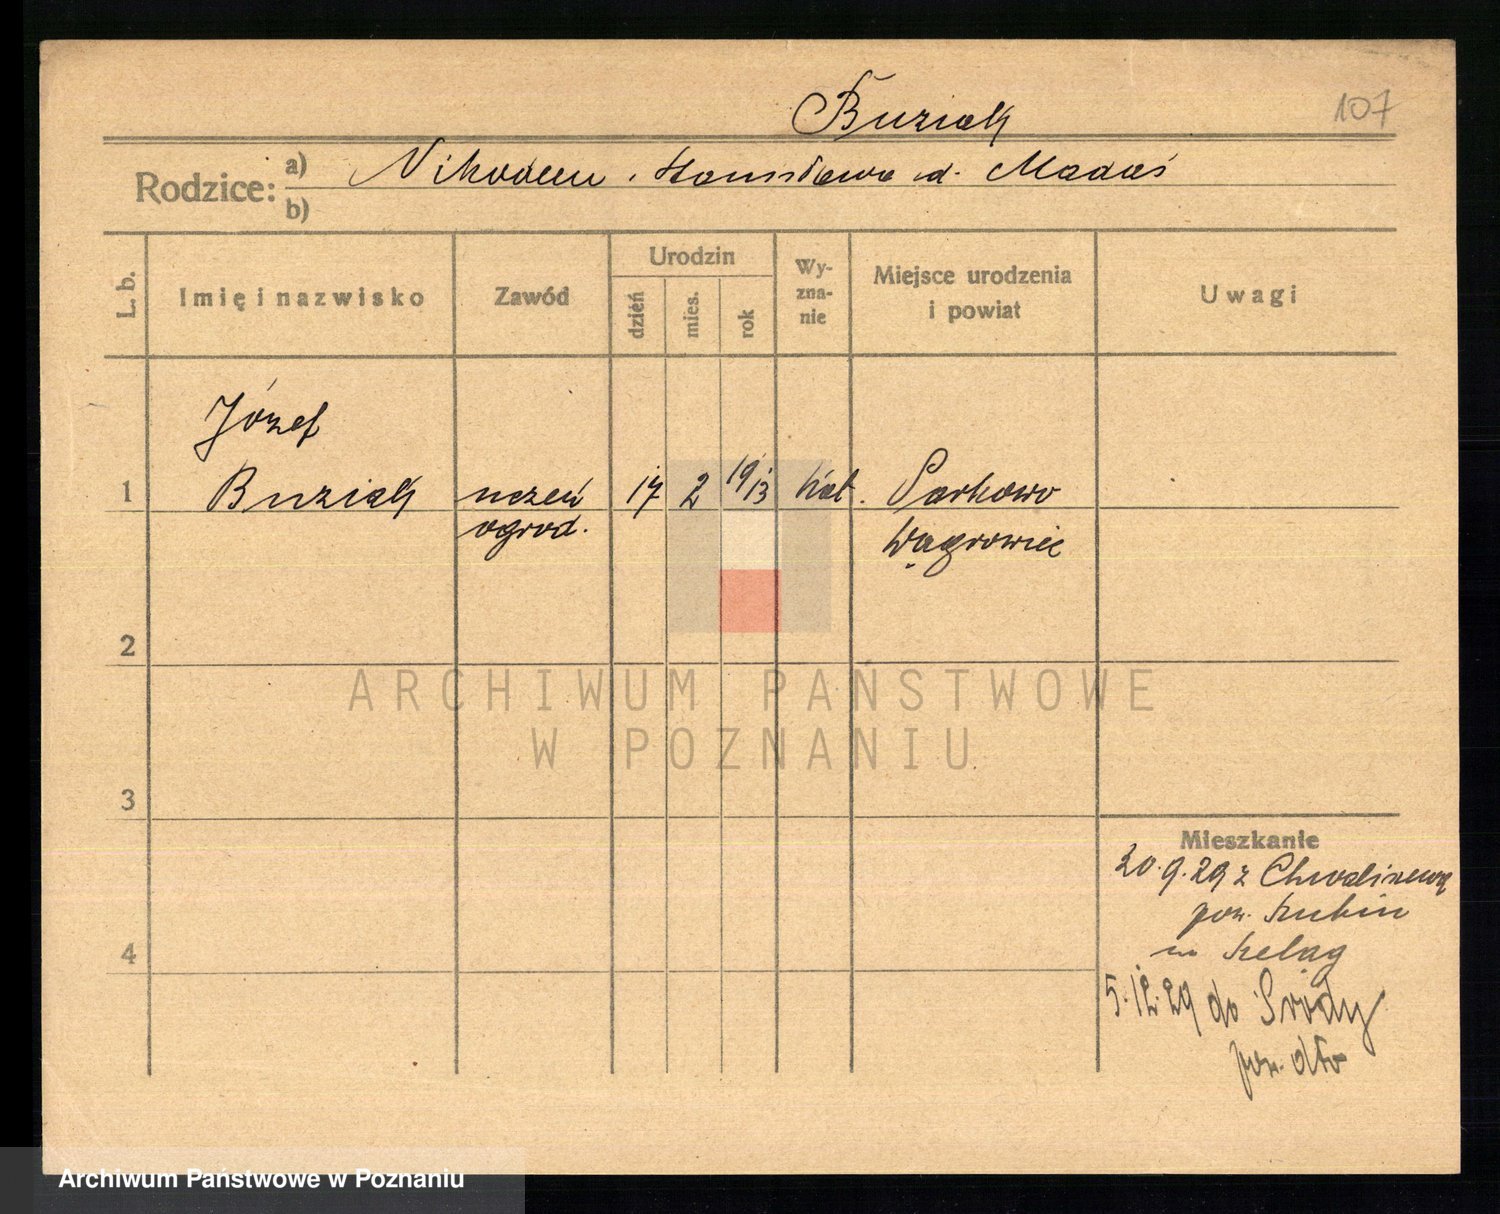 Buziak
107
Rodzice:
a) Nikodem. Stanisława d. Madaś
b)
L. b.
Imię i nazwisko
Zawód
Urodzin
dzień
mies.
rok
Wy-
zna-
nie
Miejsce urodzenia
i powiat
Uwagi
Józef
1 Buziak uczeń 17 2 19/13 kat. Parkowo
ogrod. Wągrowiec
2
3
4
Mieszkanie
20.9.29 z
pow. Szubin
w Szeląg
5.12.29 do Środy
pow. dto
ARCHIWUM PAŃSTWOWE
W POZNANIU
Archiwum Państwowe w Poznaniu